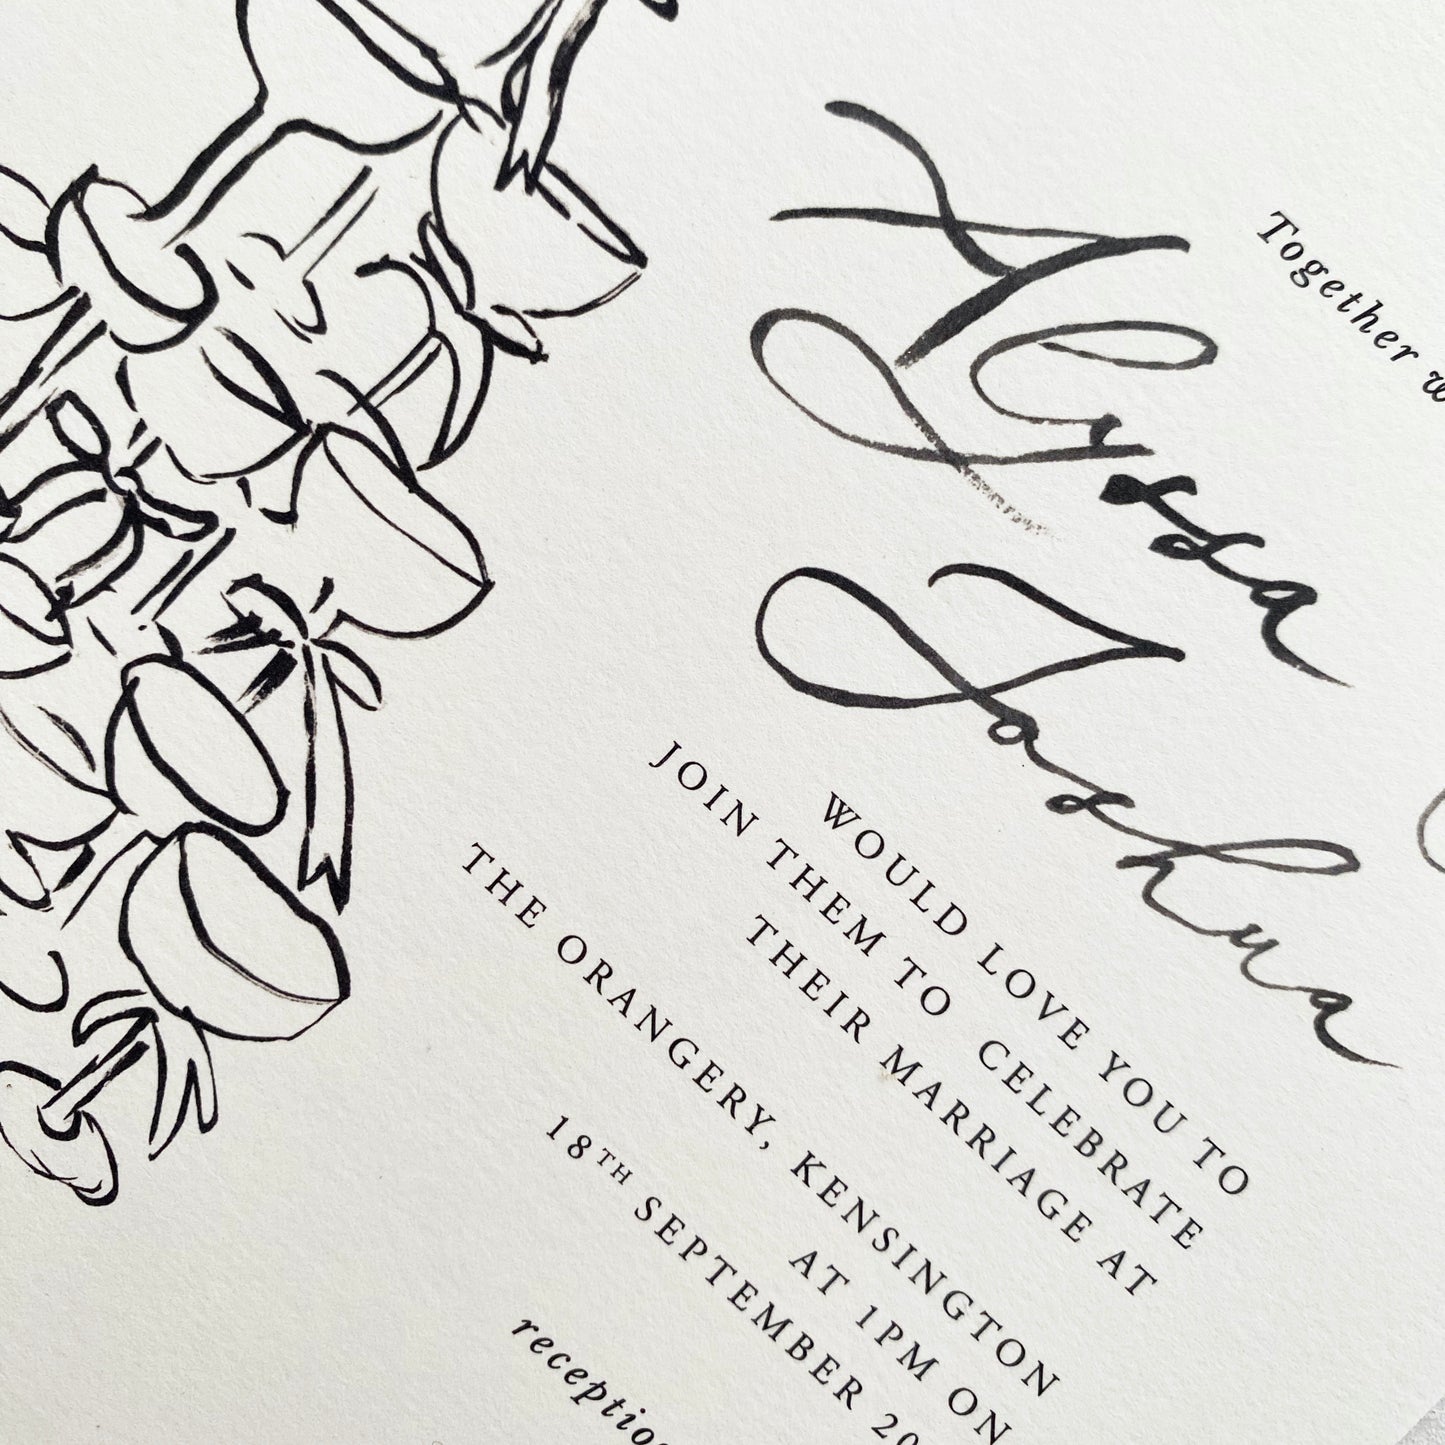 Together
Alyssa
Joshua
WOULD LOVE YOU TO
JOIN THEM TO CELEBRATE
THEIR MARRIAGE AT
THE ORANGERY, KENSINGTON
AT 1PM ON
18TH SEPTEMBER 20
reception